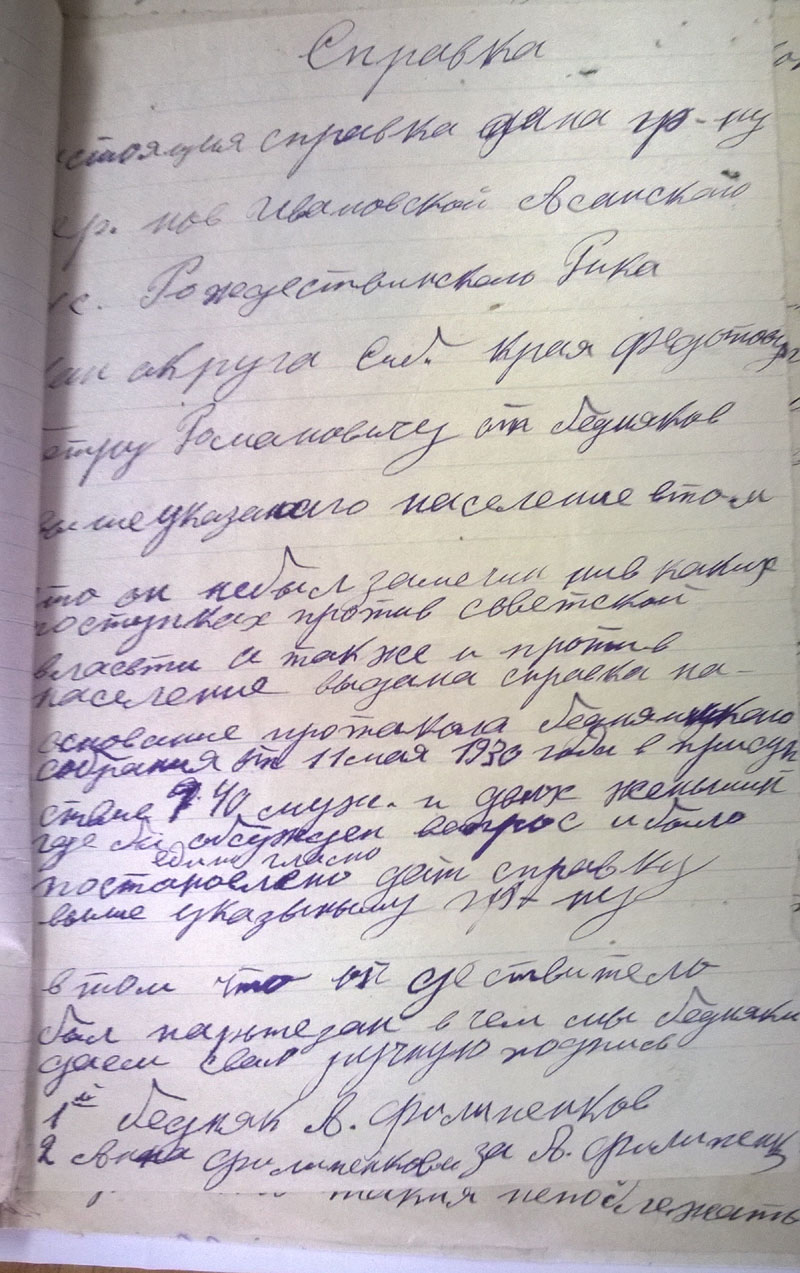 Справка
стоящия справка дана гр-ну
гр. нов Ивановской Асанского
с. Рождественсколо Рика
кан округа Сиб края Федотову
етру Романовичу от бедняков
выше указанаго население втом
что он небыл замечин нив каких
поступках против советской
власти а так же и против
население выдана справка на-
основание протакола бедняцкаго
собрания от 11 мая 1930 года в присуц
ствие 40 муж. и двух женьщин
где был обсужден вопрос и было
едино гласно
постановлено дат справку
выше указыному гр-ну
втом что он дествително
был партезан в чем мы бедняки
даем свою ручную подпись
1ый бедняк А. Филипенков
2 Анна Филипенкова за А. Филипенк
такия неподлежать